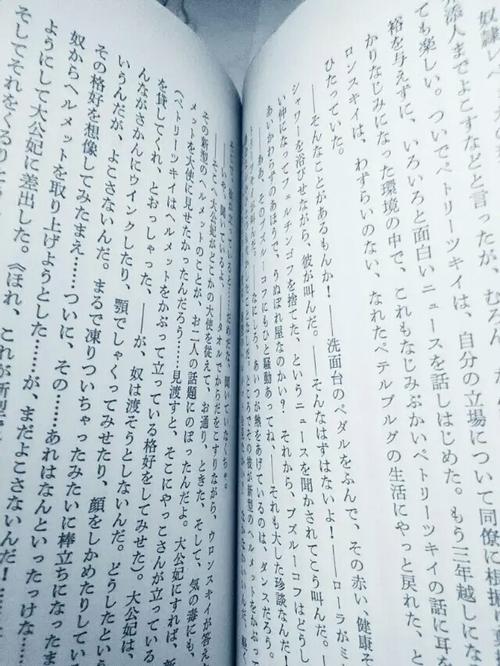 奴隷レベ
添人までよこすなどと言ったが、むろん
ても楽しい。ついでペトリーツキイは、自分の立場について同僚に相
裕を与えずに、いろいろと面白いニュースを話しはじめた。もう三年越しにな
かりなじみになった環境の中で、これもなじみぶかいペトリーツキイの話に耳
ロンスキイは、わずらいのない、なれたペテルブルグの生活にやっと戻れた、と
ひたっていた。
――そんなことがあるもんか！――洗面台のペダルをふんで、その赤い、健康
シャワーを浴びせながら、彼が叫んだ。――そんなはずはないよ！――ローラがミ
い仲になってフェルチンゴフを捨てた、というニュースを聞かされてこう叫んだ。
あいかわらずのあほうで、うぬぼれ屋なのかい？　それから、ブズルーコフはどうし
――ああ、そのブズルーコフにもひと騒動あってね、――それも大した珍談なんだ！
なにしろ、あいつが熱をあげているのは、ダンスだろう。
だ。ところでその彼が新型のヘルメットをかぶって
――いや、聞いているよ、――タオルでからだをこすりながら、ウロンスキイが答え
――そこへ、大公妃がどこかの大使を従えて、お通り、ときた、そして、気の毒にも、
その新型のヘルメットのことが、お二人の話題にのぼったんだよ。大公妃にすれば、新
メットを大使に見せたかったんだろう……見渡すと、そこにやっこさんが立っている
（ペトリーツキイはヘルメットをかぶって立っている格好をしてみせた）。大公妃は、
を貸してくれ、とおっしゃった、――が、奴は渡そうとしないんだ。どうしたという
んながさかんにウインクしたり、顎でしゃくってみせたり、顔をしかめたりしている
いうんだが、よこさないんだ。まるで凍りついちゃったみたいに棒立ちになったま
その格好を想像してみたまえ……ついに、その……あれはなんといったっけな……
奴からヘルメットを取り上げようとした……が、まだよこさないんだ！……
ようにして大公妃に差出した。《ほれ、これが新型で
そしてそれをくるり